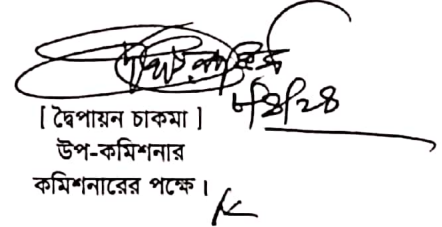 ৮/৪/২৪
[ দ্বৈপায়ন চাকমা ]
উপ-কমিশনার
কমিশনারের পক্ষে ।